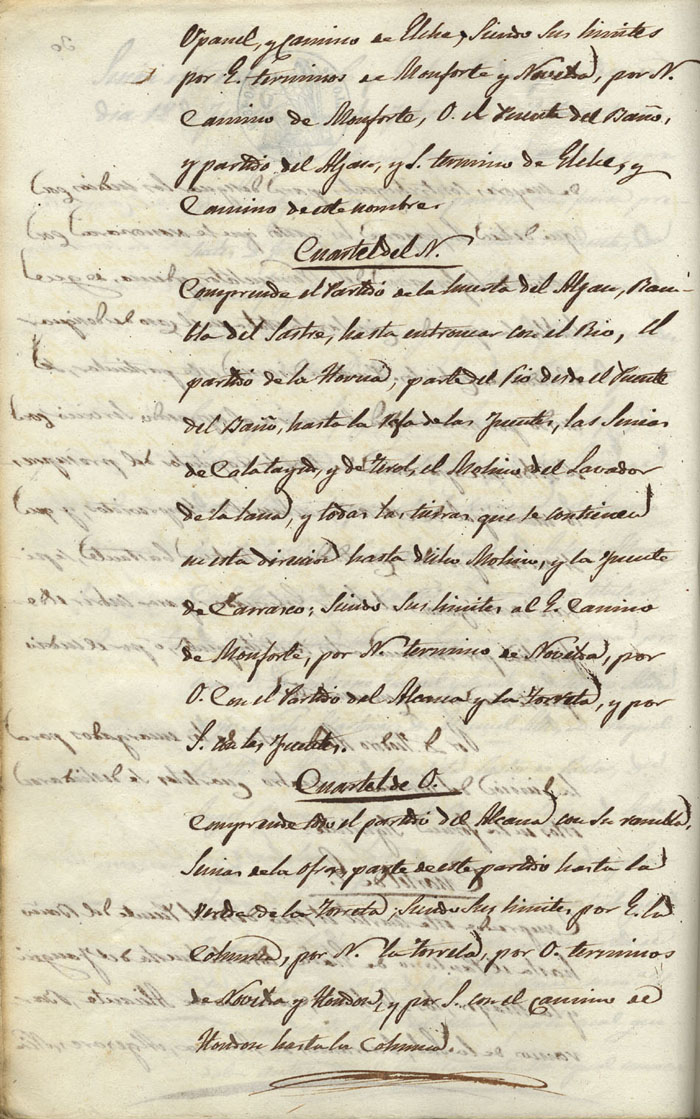 y Camino de Elche, siendo sus limites
por E. terminos de Monforte y Novelda, por N.
Camino de Monforte, O. el Puente del Baño,
y partido del Aljau, y S. termino de Elche, y
Camino de este nombre.
Cuartel del N.
Comprende el Partido de la huerta del Aljau, Ram-
bla del Sastre, hasta entroncar con el Rio, el
partido de la Horna, parte del Rio desde el Puente
del Baño, hasta la de las Fuentes, las Senias
de Calatayud, y de Tirol, el Molino del Lavador
de la lana, y todas las tierras que se contienen
en esta direccion hasta dicho Molino, y la Fuente
de Carrasco; siendo sus limites al E. Camino
de Monforte, por N. termino de Novelda, por
O. con el Partido del Alcana y la Torreta, y por
S. las Fuentes.
Cuartel de O.
Comprende todo el partido del Alcana con su
Senias de la parte de este partido hasta la
de la Torreta, siendo sus limites por E. la
Columna, por N. la Torreta, por O. terminos
de Novelda y Hondon, y por S. con el camino de
Hondon hasta la Columna.